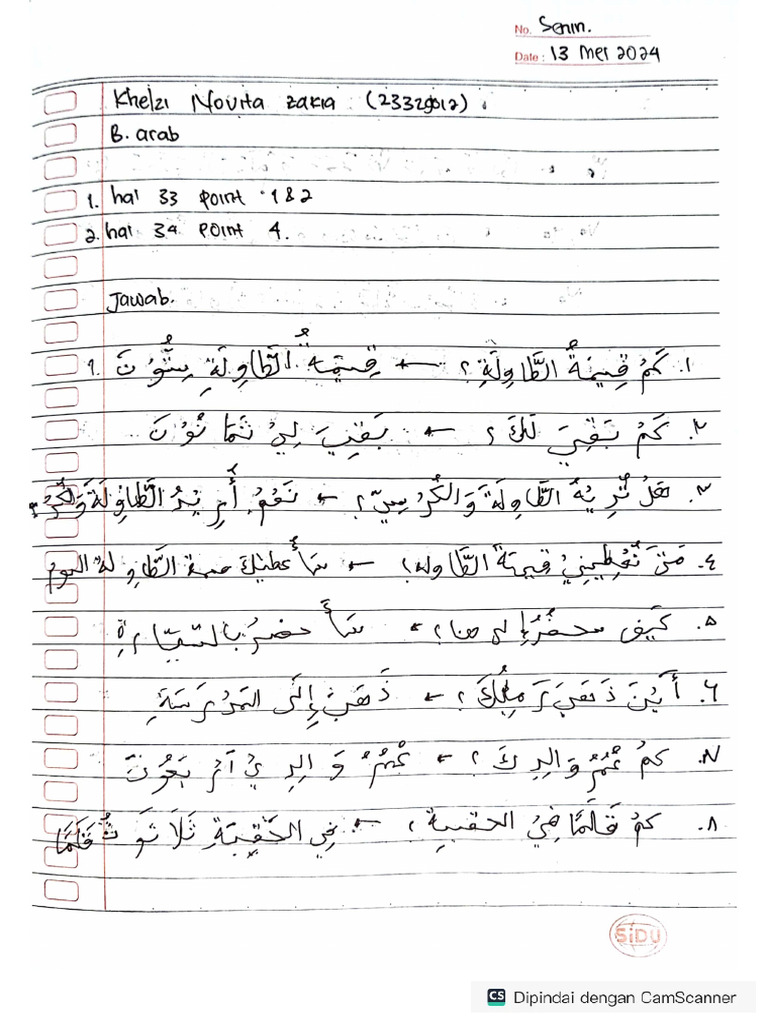 No. Senin.
Date : 13 Mei 2024
Khelzi Novita Zakia (23329012)
B. arab
1. hal 33 point 1 & 2
2. hal 34 point 4.
Jawab.
1. ١. كَمْ قِيمَةُ الطَّاوِلَةِ؟ ← قِيمَةُ الطَّاوِلَةِ سِتُّوْنَ
٢. كَمْ بَقِيَ لَكَ؟ ← بَقِيَ لِيْ ثَمَانُوْنَ
٣. هَلْ تُرِيْدُ الطَّاوِلَةَ وَالْكُرْسِيَّ؟ ← نَعَمْ، أُرِيْدُ الطَّاوِلَةَ وَالْكُرْ
٤. مَتَى تُعْطِيْنِيْ قِيمَةَ الطَّاوله؟ ← سَأُعطيك قيمة الطَّاوِلة اليوم
٥. كَيْفَ إلى هنا؟ ← سَأَحضرُ بالسَّيَّارةِ
٦. أَيْنَ ذَهَبَ زَمِيْلُكَ؟ ← ذَهَبَ إِلَى المَدْرَسَةِ
٧. كمْ عُمْرُ وَالِدِكَ؟ ← عُمْرُ وَالِدِيْ أَرْبَعُوْنَ
٨. كمْ قَلَمًا فِيْ الحقيبة؟ ← فِي الحَقِيْبَةِ ثَلَاثَوْنَ قَلَمًا
SiDU
CS Dipindai dengan CamScanner